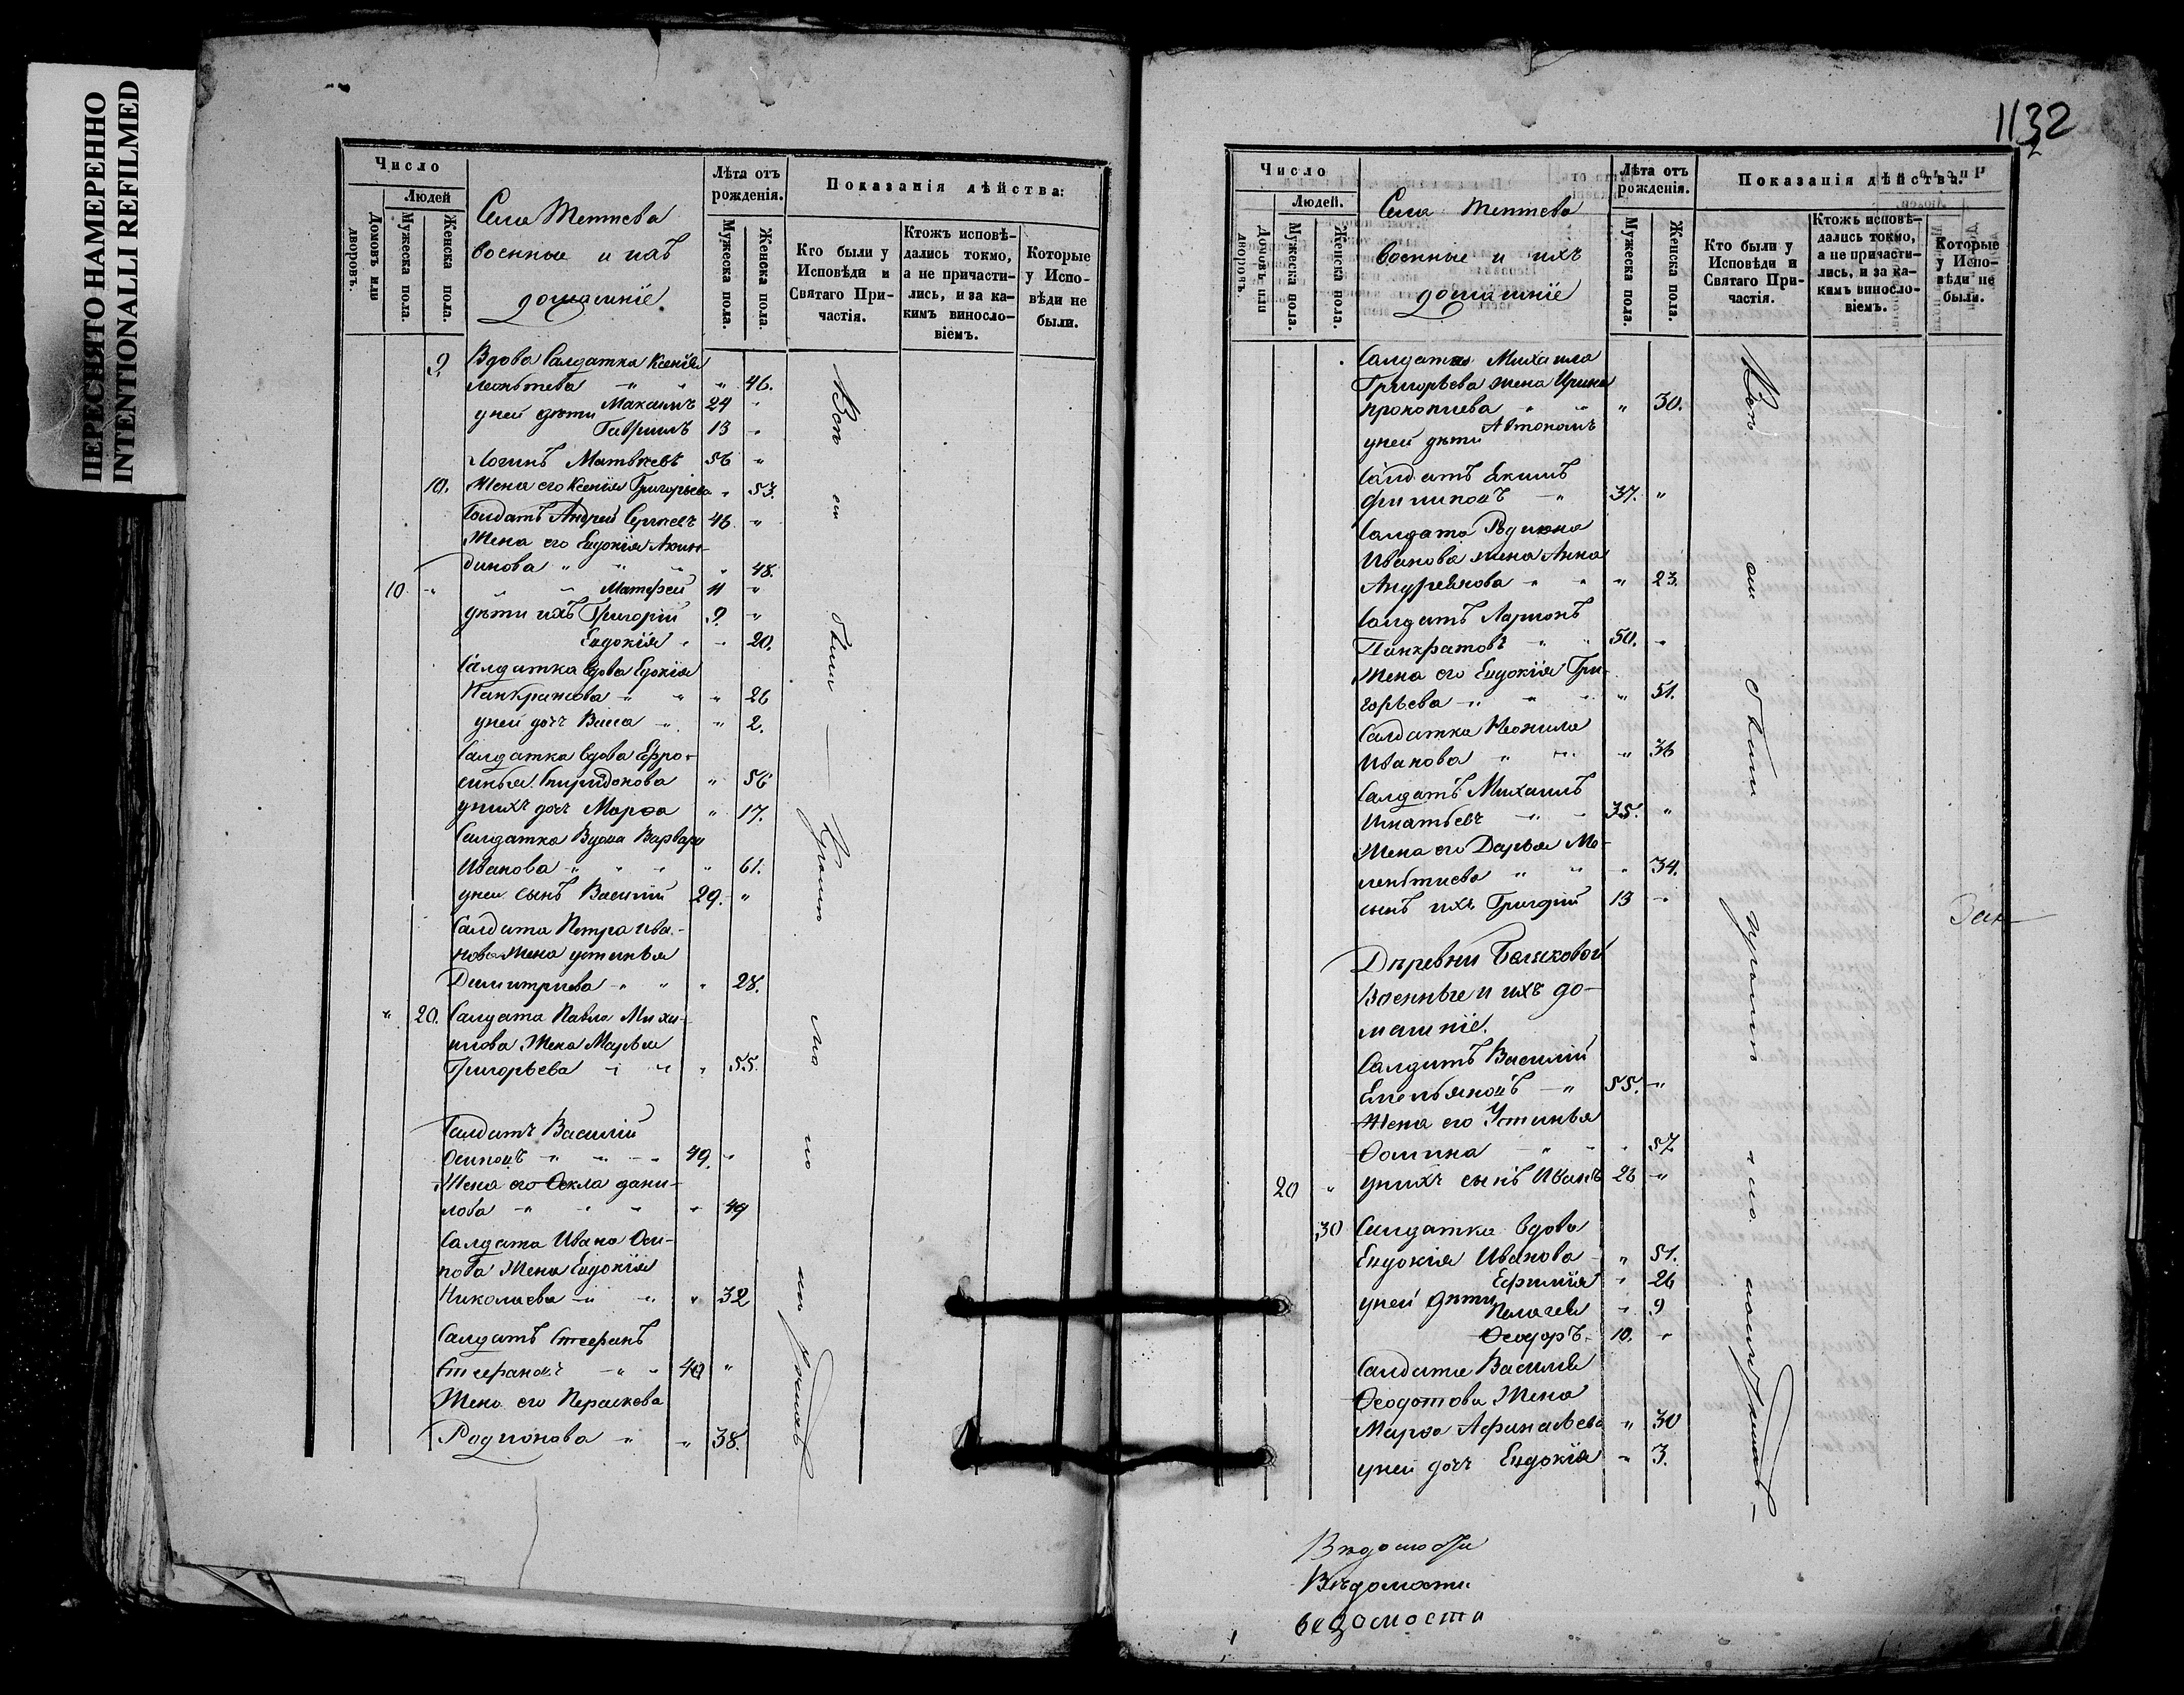 ПЕРЕСНЯТО НАМЕРЕННО
INTENTIONALLI REFILMED
Число
Людей
Домовъ или дворовъ.
Мужеска пола.
Женска пола.
Села Тептева
военные и ихъ
домашніе
Лѣта отъ рожденія.
Мужеска пола.
Женска пола.
Показанія дѣйства:
Кто были у Исповѣди и Святаго Причастія.
Ктожъ исповѣ-
дались токмо,
а не причасти-
лись, и за ка-
кимъ винословіемъ.
Которые
у Испо-
вѣди не
были.
9. Вдова Салдатка Ксенія
Леонтьева " " " 46.
уней дѣти Максимъ 24 "
Гавріилъ 13 "
Логинъ Матвѣевъ 56 "
10. Жена его Ксенія Григорьева " 53.
Солдатъ Андрей Сергѣевъ 46 "
Жена его Евдокія Акин-
динова " " " 48.
10 " " " Матфей 11 "
дѣти ихъ Григорій 9. "
Евдокія " " 20.
Салдатка вдова Едокія
Панкратова " " " 26
уней дочь Васса " " 2.
Салдатка вдова Ефро-
синья Спиридонова " 56
унихъ дочь Марѳа " 17.
Салдатка Вдова Варвара
Иванова " " " " 61.
уней сынъ Василій 29. "
Салдата Петра Ива-
нова Жена устинья
Димитріева " " " 28.
" 20. Салдата Павла Миха-
илова Жена Марья
Григорьева " " " 55.
Салдатъ Василій
Осиповъ " " " 49. "
Жена его Ѳекла дани-
лова " " " " 49
Салдата Ивана Оси-
пова Жена Евдокія
Николаева " " " 32
Салдатъ Стефанъ
Стефановъ " " 40 "
Жена его Параскева
Родионова " " 38.
1132
2
Число
Людей.
Домовъ или дворовъ.
Мужеска пола.
Женска пола.
Села Тептева
военные и ихъ
домашніе
Лѣта отъ рожденія.
Мужеска пола.
Женска пола.
Показанія дѣйства.
Кто были у Исповѣди и Святаго Причастія.
Ктожъ исповѣ-
дались токмо,
а не причасти-
лись, и за ка-
кимъ винословіемъ.
Которые
у Испо-
вѣди не
были.
Салдата Михаила
Григорьева жена Ирина
прокопиева " " " 30.
уней дѣти Автономъ
Салдатъ Екимъ
Филиповъ " 37. "
Салдата Родиона
Иванова жена Анна
Андреянова " " " 23.
Салдатъ Ларионъ
Панкратовъ " " 50. "
Жена его Евдокія Гри-
горьева " " " " 51.
Салдатка Неонила
Иванова " " " 36
Салдатъ Михаилъ
Игнатьевъ " " 35. "
Жена его Дарья Ме-
лентиева " " " 34.
сынъ ихъ Григорій 13 "
Зак
Деревни Баляковой
Военные и ихъ до-
машніе.
Салдатъ Василій
Емельяновъ " 55. "
Жена его Устинья
Ѳомина " " " 57.
20 " унихъ сынъ Иванъ 26 "
30 Салдатка вдова
Евдокія Иванова " " 51.
Ефимія " 26
уней дѣти Пелагея " 9
Ѳеодоръ 10. "
Салдата Василія
Ѳеодотова Жена
Марѳа Афанасьева " 30
уней дочь Евдокія " 3.
Вѣдомости
ведомости